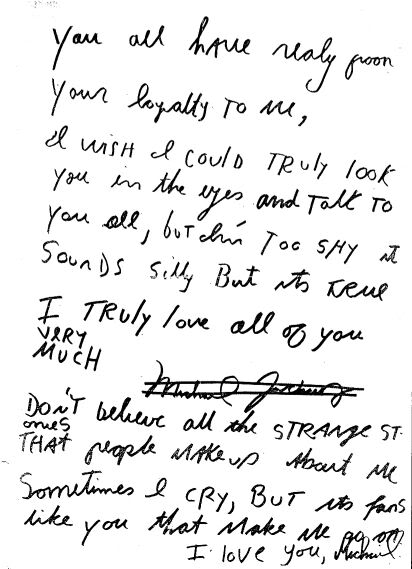 You all have realy proon
Your loyalty To me,
I wISH I COULD TRULY look
you in the eyes and Talk To
you all, but Im Too SHY it
SOUNDS Silly But its TRUE
I TRULY love all of you
VERY
MUCH
Michael Jackson
DON'T believe all the STRANGE ST.
ories
THAT people MAKE up About me
Sometimes I CRY, BUT its fans
like you that Make Me go on
I love you, Michael